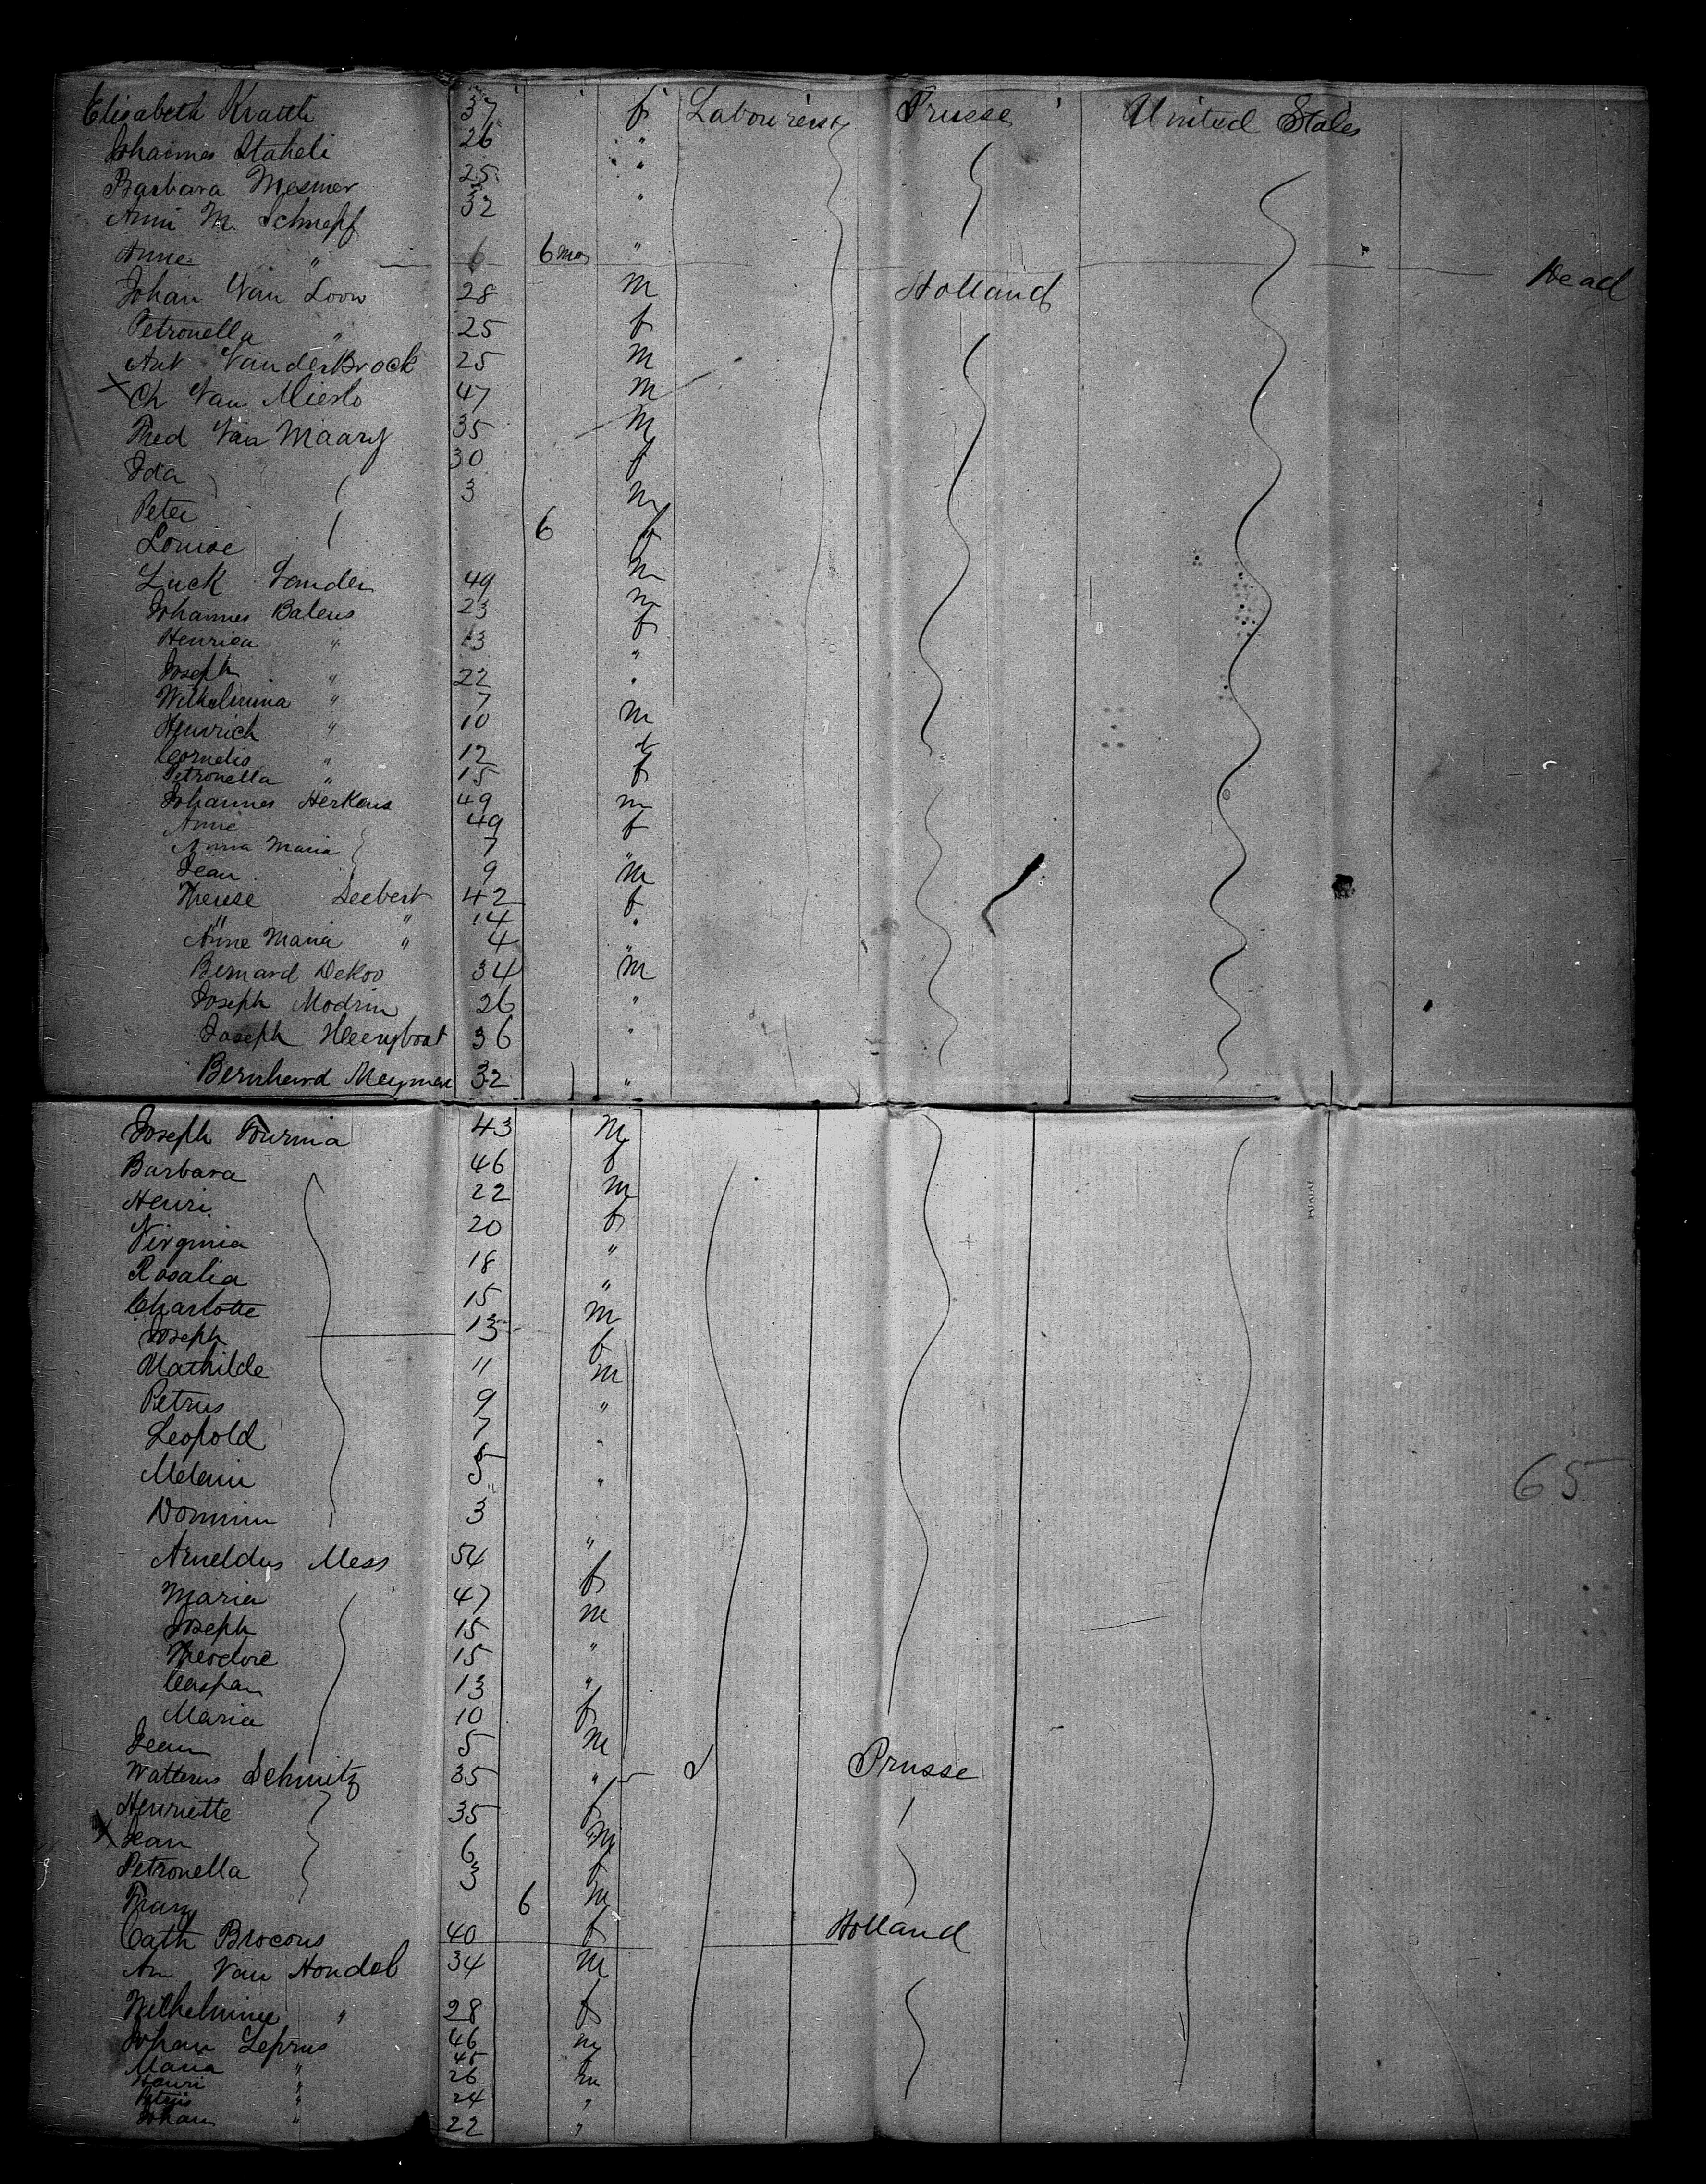 Elisabeth Krattli 37 f Labourers Prusse United States
Johannes Staheli 26 "
Barbara Mesmer 25 "
Anni M. Schnepf 32 "
Anne " 6 6 mos " Dead
Johan Van Loow 28 M Holland
Petronella " 25 f
Ant VanderBrock 25 M
X Ch Van Mierlo 47 M
Fred Van Maary 35 M
Ida 30 f
Peter 3 M
Louise 6 f
Luck Sanden 49 m
Johannes Balens 23 m
Henrica " 13 f
Joseph " 22 "
Wilhelmina " 7 "
Heinrich " 10 m
Cornelis " 12
Petronella " 15 f
Johannes Herkens 49 m
Anne 49 f
Anna Maria 7 "
Jean 9 M
Therese Seebert 42 f
" " 14 "
Anne Maria " 4 "
Bernard DeKoo 34 M
Joseph Modrin 26 "
Joseph 36 "
Bernhard Meyman 32 "
Joseph Tournia 43 M
Barbara 46 f
Henri 22 m
Virginia 20 f
Rosalia 18 "
Charlotte 15 "
Joseph 13 M
Mathilde 11 f
Petrus 9 m
Leopold 7 "
Melanie 5 "
65
Dominin 3 "
Arneldus Mess 54 "
Maria 47 f
Joseph 15 m
Theodore 15 "
Caspar 13 "
Maria 10 f
Jean 5 M
Watterus Schmitz 35 " Prusse
Henriette 35 f
X Jean 6 M
Petronella 3 f
Franz 6 M
Cath Brocous 40 f Holland
An Van Hondel 34 M
Wilhelmine " 28 f
Johan Leprus 46 m
Maria " 45 f
Henri " 26 m
Petrus " 24 "
Johan " 22 "